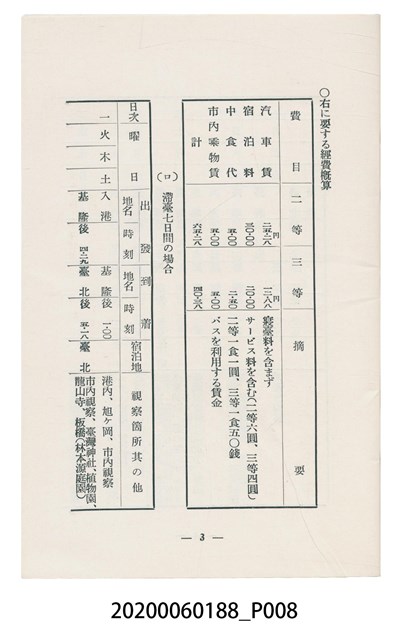 ○右に要する經費概算
費目 二等 三等 摘要
汽車賃 二五・二八円 一二・八八円 寢臺料を含まず
宿泊料 三〇・〇〇 二〇・〇〇 サービス料を含む(二等六圓、三等四圓)
中食代 五・〇〇 二・五〇 二等一食一圓、三等一食五〇錢
市內乘物賃 五・〇〇 五・〇〇 バスを利用する賃金
計 六五・二八 四〇・三八
(ロ) 滯臺七日間の場合
日次 曜日 出發 地名 時刻 到着 地名 時刻 宿泊地 視察箇所其の他
一 火木土 入港 基隆 一・〇〇 港內、旭ケ岡、市內視察
基隆 後 四・二九 臺北 後 五・一八 臺北 市內視察、臺灣神社、植物園、
龍山寺、板橋(林本源庭園)
— 3 —
20200060188_P008